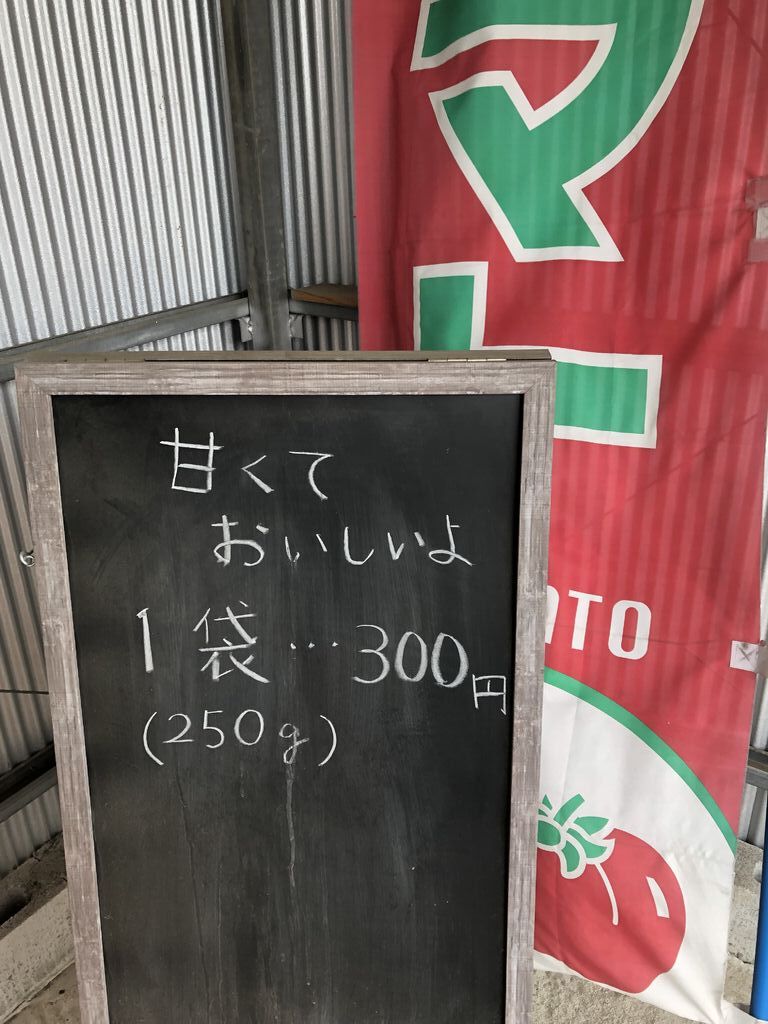 甘くて
おいしいよ
1袋…300円
(250g)
マト
ATO